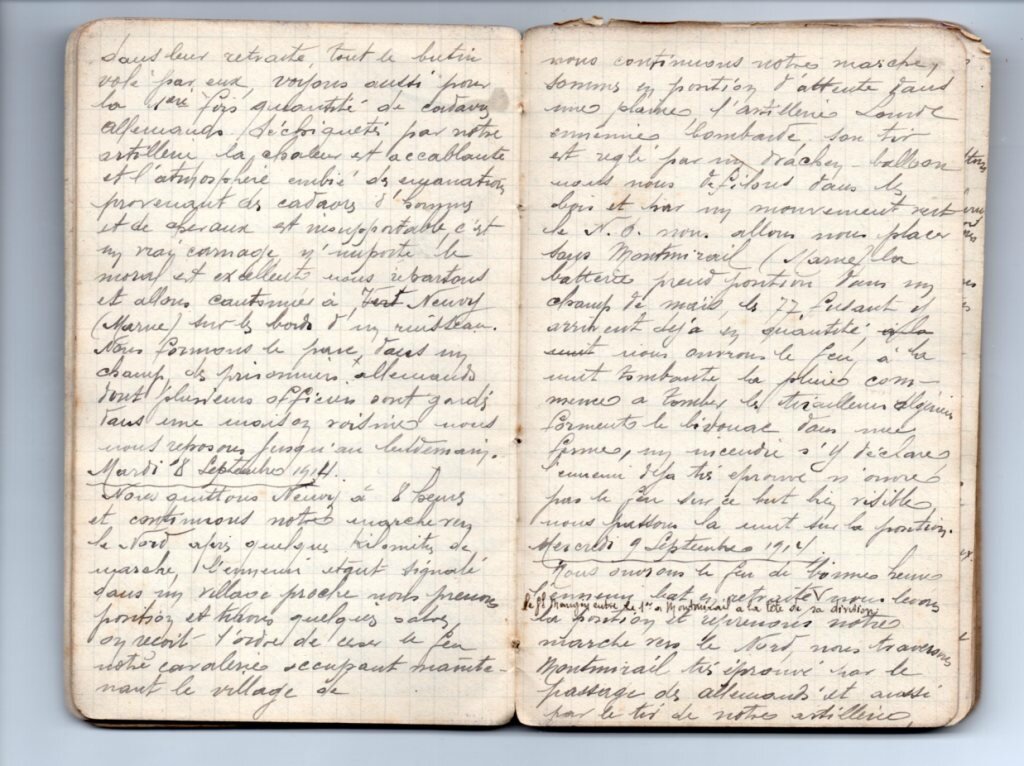 dans leur retraite, tout le butin
volé par eux, voyons aussi pour
la 1ère fois quantité de cadavres
allemands déchiquetés par notre
artillerie, la chaleur est accablante
et l'atmosphère des émanations
provenant des cadavres d'hommes
et de chevaux est insupportable, c'est
un vrai carnage, n'importe le
moral est excellent nous repartons
et allons cantonner à Neuvy
(Marne) sur les bords d'un ruisseau.
Nous formons le parc dans un
champ, des prisonniers allemands
dont plusieurs officiers sont gardés
dans une maison voisine nous
nous reposons jusqu'au lendemain.
Mardi 8 Septembre 1914.
Nous quittons Neuvy à 8 heures
et continuons notre marche vers
le Nord après quelques kilomètres de
marche, l'ennemi étant signalé
dans un village proche nous prenons
position et tirons quelques salves,
on reçoit l'ordre de cesser le feu
notre cavalerie occupant mainte-
nant le village de
nous continuons notre marche,
sommes en position d'attente dans
une plaine, l'artillerie lourde
ennemie bombarde, son tir
est reglé par un drachen-balloon
nous nous défilons dans les
bois et par un mouvement vers
le N.O. nous allons nous placer
sous Montmirail (Marne) la
batterie prend position dans un
champ de maïs, les 77 fusant
arrivent déjà en quantité, à la
nuit nous ouvrons le feu, à la
nuit tombante la pluie com-
mence à tomber les tirailleurs algériens
forment le bivouac dans une
ferme, un incendie s'y déclare
l'ennemi déjà très éprouvé n'ouvre
pas le feu sur ce but très visible
nous passons la nuit sur la position.
Mercredi 9 Septembre 1914
Nous ouvrons le feu de bonne heure
l'ennemi bat en retraite nous levons
le gl entre le 1er à Montmirail à la tête de sa division
la position et reprenons notre
marche vers le Nord, nous traversons
Montmirail très éprouvé par le
passage des allemands et aussi
par le tir de notre artillerie,